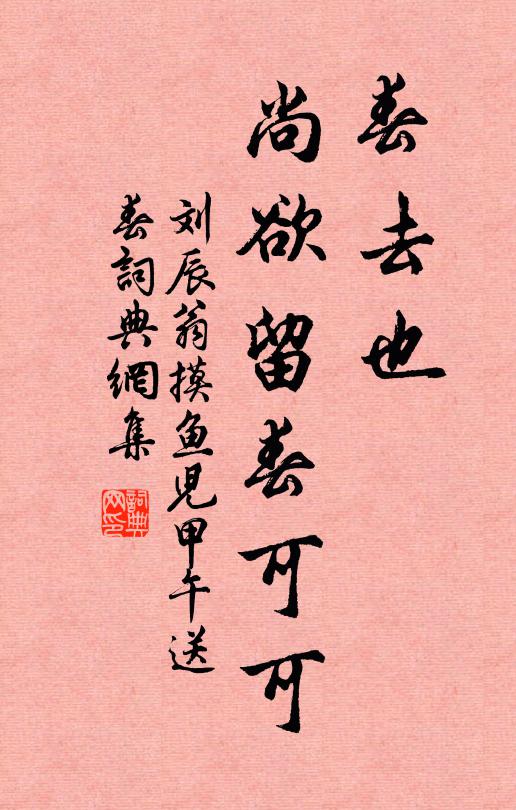 春去也
尚欲留春可可
刘辰翁摸鱼児甲午送
春詞典網集
詞典网印